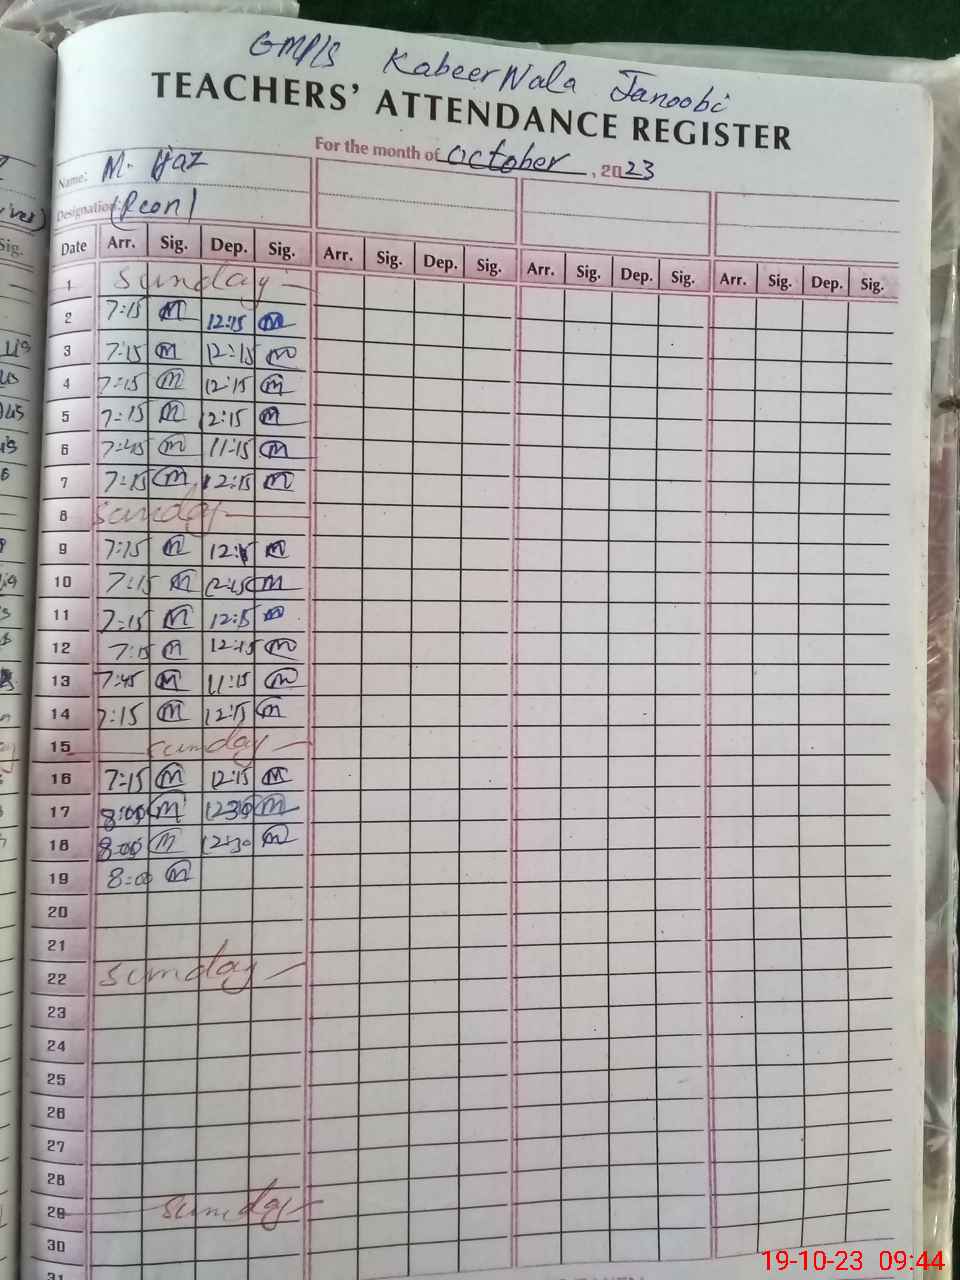 GMPLS Kabeer Wala Janoobi
TEACHERS' ATTENDANCE REGISTER
For the month of October, 2023
Name: M. Ijaz
Designation: (Peon)
Date Arr. Sig. Dep. Sig. Arr. Sig. Dep. Sig. Arr. Sig. Dep. Sig. Arr. Sig. Dep. Sig.
1 Sunday
2 7:15 M 12:15 M
3 7:15 M 12:15 M
4 7:15 M 12:15 M
5 7:15 M 12:15 M
6 7:45 M 11:15 M
7 7:15 M 12:15 M
8 Sunday
9 7:15 M 12:15 M
10 7:15 M 12:15 M
11 7:15 M 12:15 M
12 7:15 M 12:15 M
13 7:45 M 11:15 M
14 7:15 M 12:15 M
15 sunday
16 7:15 M 12:15 M
17 8:00 M 12:30 M
18 8:00 M 12:30 M
19 8:00 M
20
21
22 Sunday
23
24
25
26
27
28
29 Sunday
30
31
19-10-23 09:44